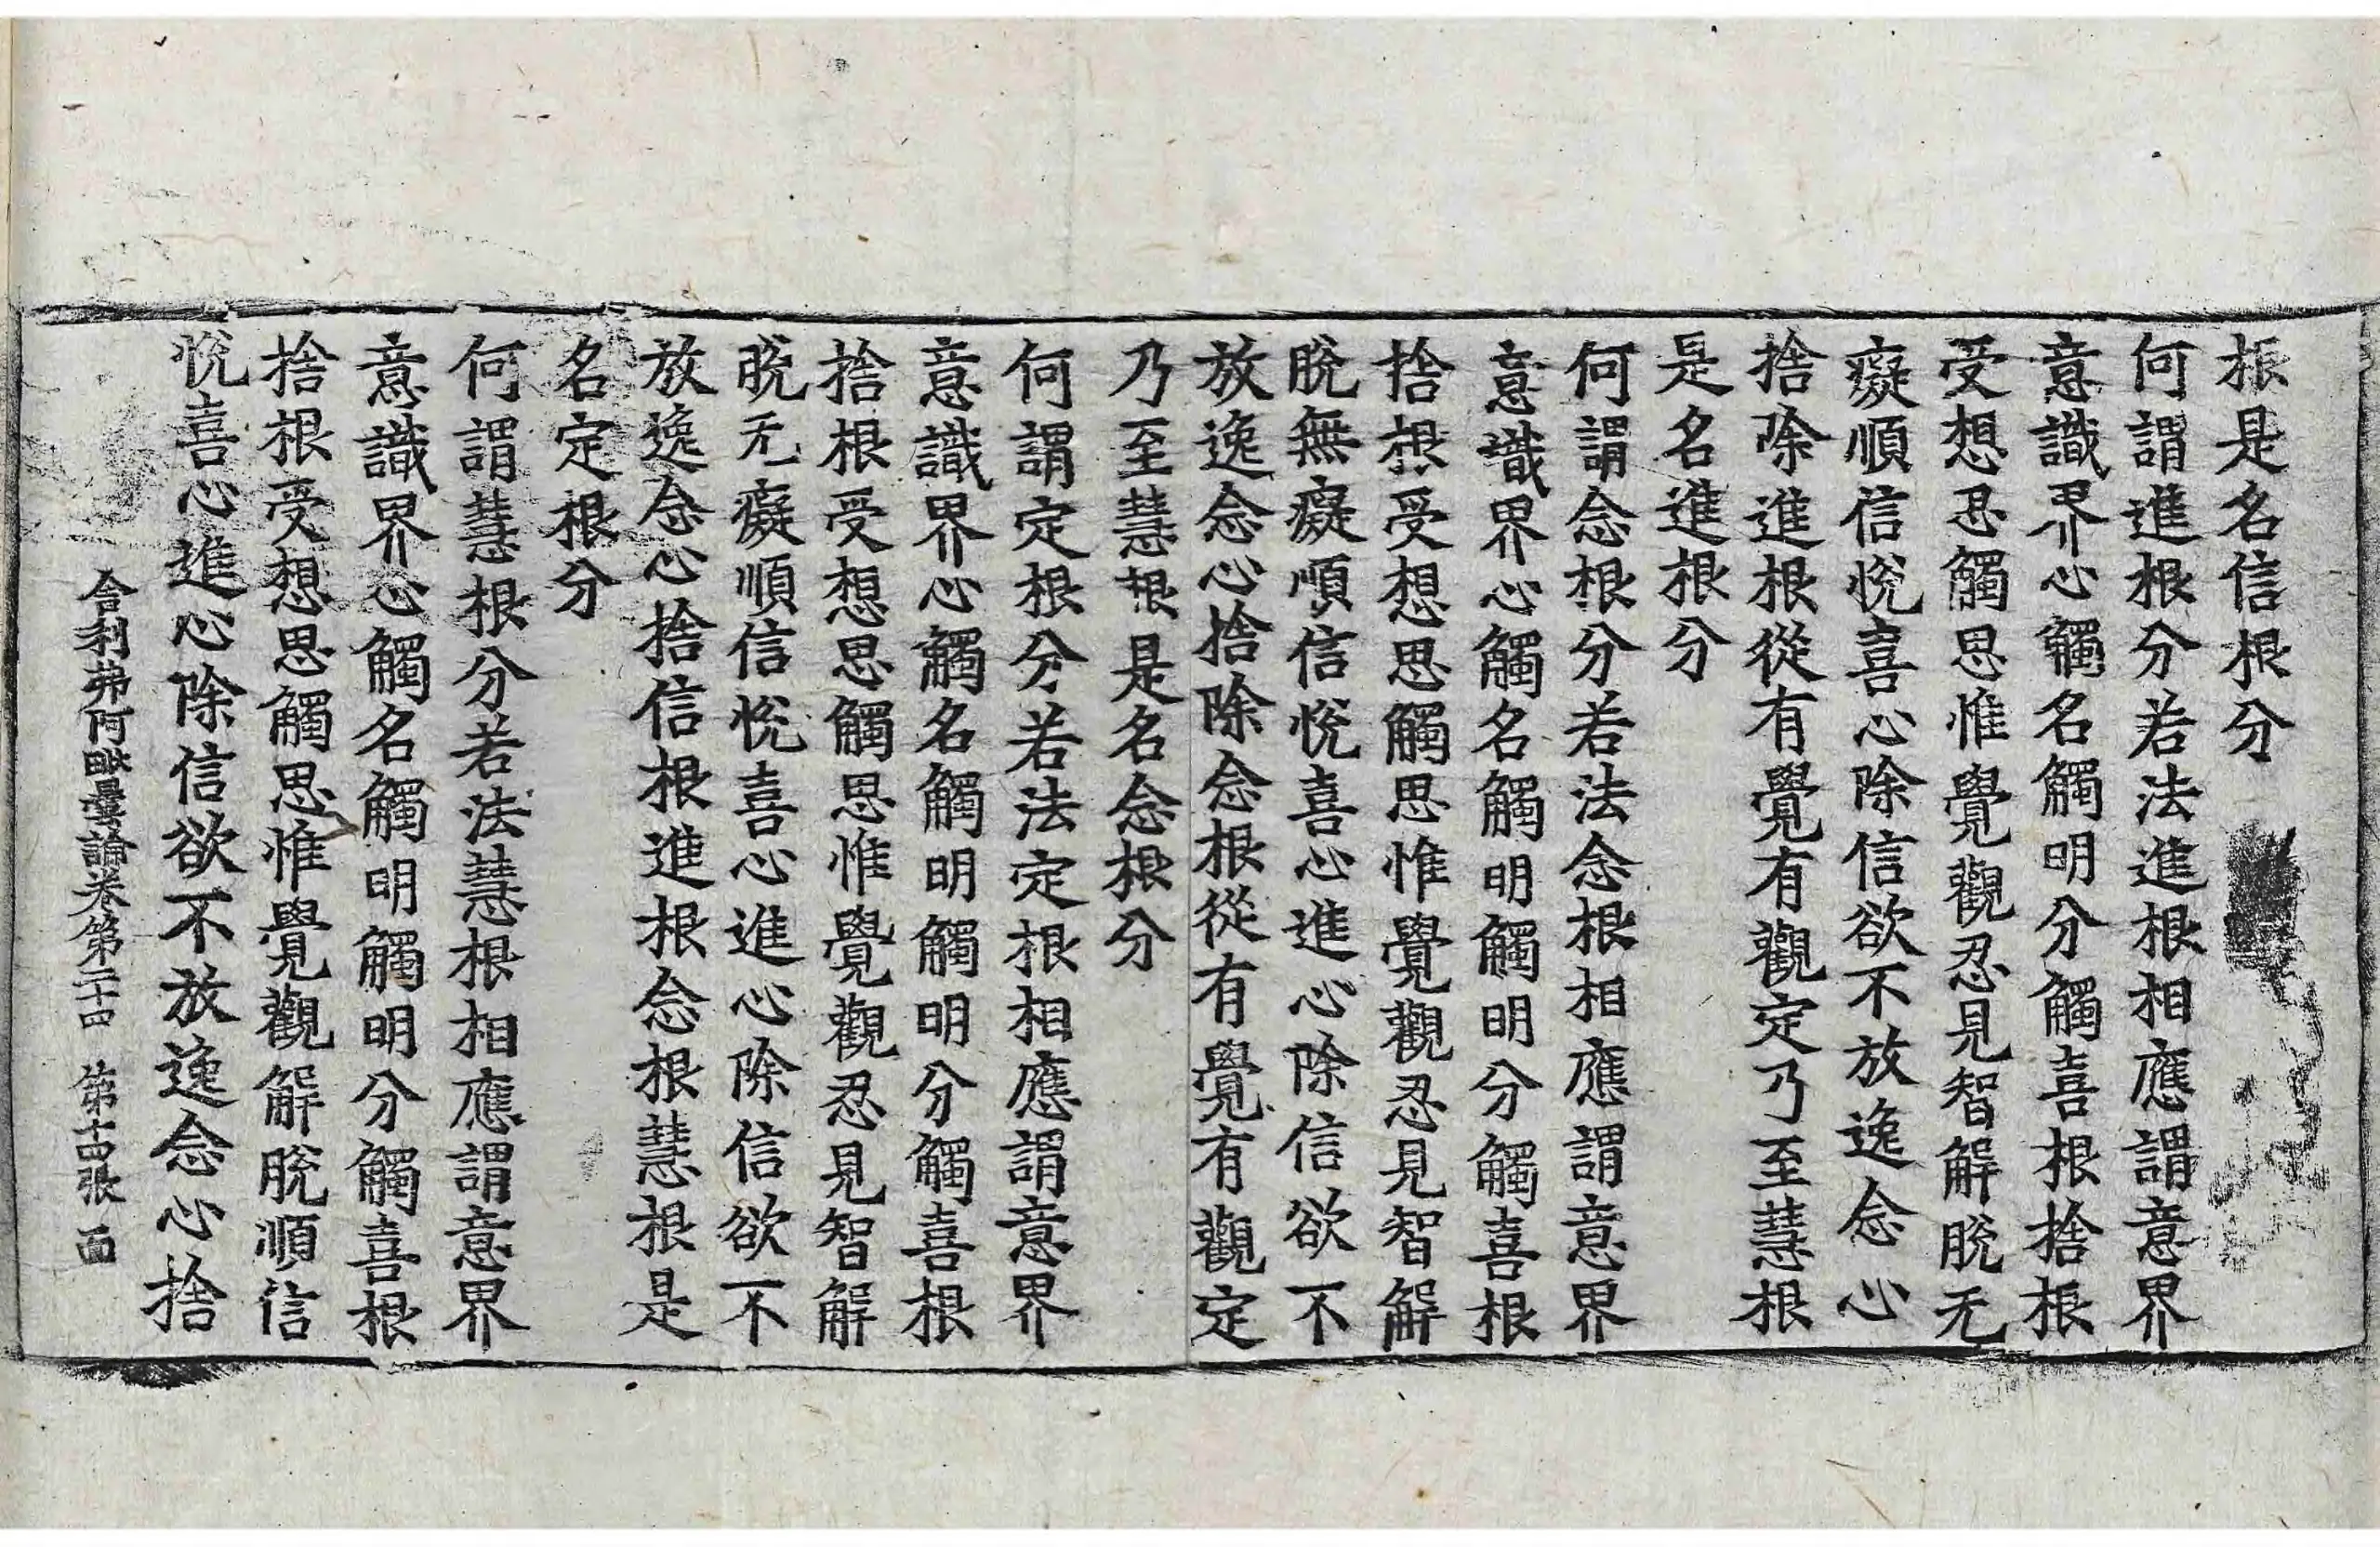 根是名信根分
何謂進根分若法進根相應謂意界
意識界心觸名觸明分觸喜根捨根
受想忍觸思惟覺觀忍見智解脫无
癡順信悅喜心除信欲不放逸念心
捨除進根從有覺有觀定乃至慧根
是名進根分
何謂念根分若法念根相應謂意界
意識界心觸名觸明觸明分觸喜根
捨根受想思觸思惟覺觀忍見智解
脫無癡順信悅喜心進心除信欲不
放逸念心捨除念根從有覺有觀定
乃至慧根是名念根分
何謂定根分若法定根相應謂意界
意識界心觸名觸明觸明分觸喜根
捨根受想思觸思惟覺觀忍見智解
脫无癡順信悅喜心進心除信欲不
放逸念心捨信根進根念根慧根是
名定根分
何謂慧根分若法慧根相應謂意界
意識界心觸名觸明觸明分觸喜根
捨根受想思觸思惟覺觀解脫順信
悅喜心進心除信欲不放逸念心捨
舍利弗阿毗曇論卷第二十四 第十四張 面